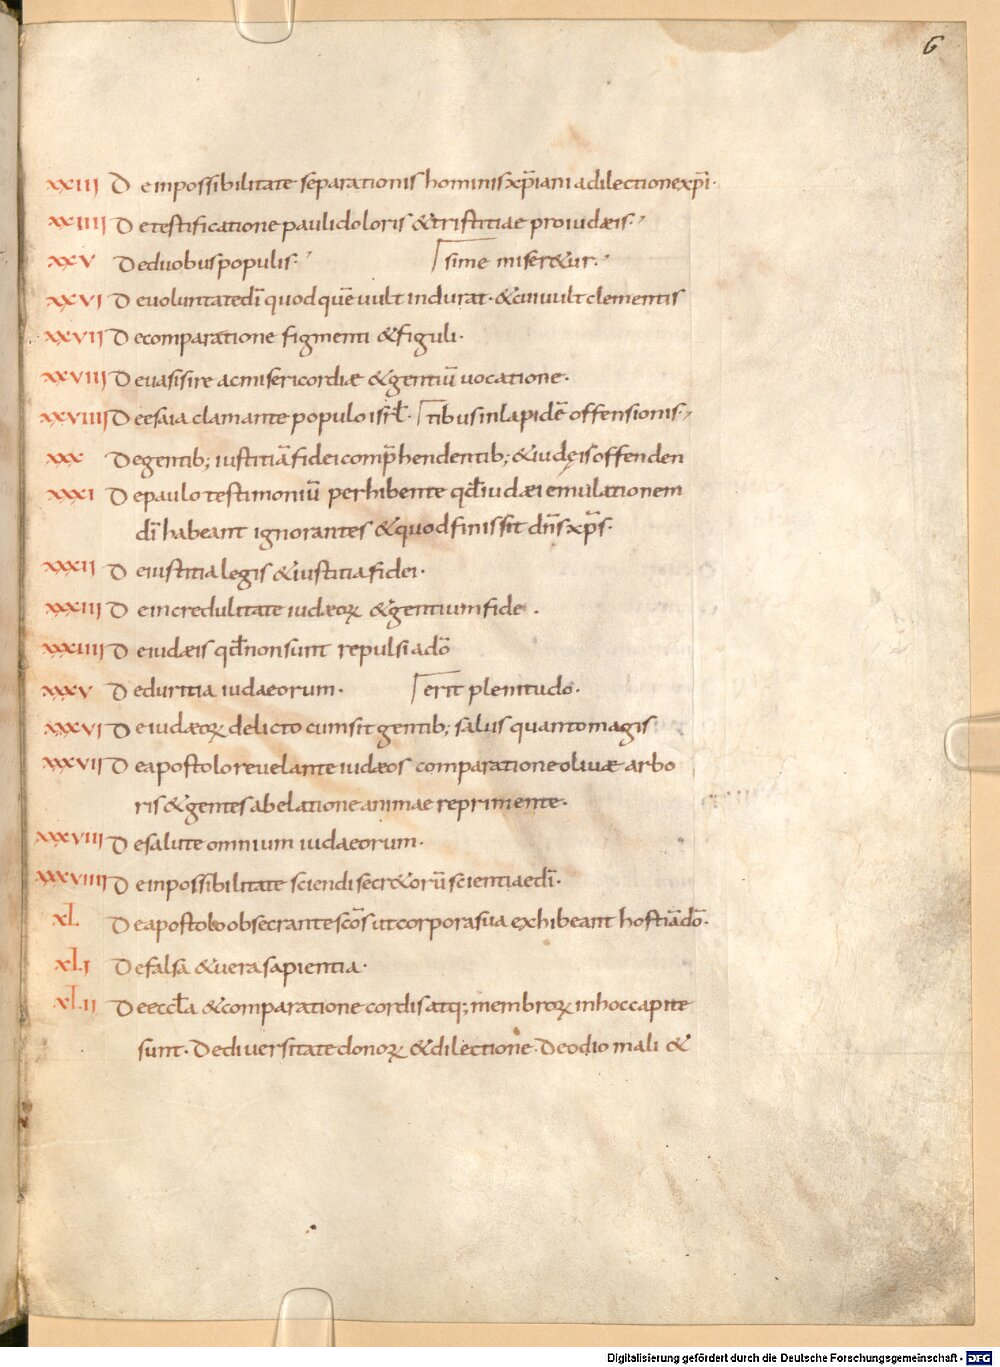 6
XXIII De inpossibilitate separationis hominis xp̄iani a dilectione xp̄i·
XXIIII De testificatione pauli doloris & tristitiae pro iudæis·
XXV De duobus populis· ⌈sime miser&ur·
XXVI De uoluntate dī quod quē uult indurat· & cui uult clementis
XXVII De comparatione figmenti & figuli·
XXVIII De uasis irę ac misericordiæ & gentiū uocatione·
XXVIIII De esaia clamante populo isrl̄· ⌈tibus in lapidē offensionis·
XXX De gentib; iustitiā fidei comp̄hendentib; & iudęis offenden
XXXI De paulo testimoniū perhibente qd̄ iudæi emulationem
dī habeant ignorantes & quod finis sit dn̄s xp̄s·
XXXII De iustitia legis & iustitia fidei·
XXXIII De incredulitate iudæoꝝ & gentium fide·
XXXIIII De iudæis qd̄ non sunt repulsi a dō
XXXV De duritia iudaeorum· ⌈erit plenitudo·
XXXVI De iudæoꝝ delicto cum sit gentib; salus quanto magis
XXXVII De apostolo reuelante iudæos comparatione oliuæ arbo
ris & gentes ab elatione animae reprimente·
XXXVIII De salute omnium iudaeorum·
XXXVIIII De inpossibilitate sciendi secr&orū scientiae dī·
XL De apostolo obsecrante scōs ut corpora sua exhibeant hostiā dō·
XLI De falsa & uera sapientia·
XLII De eccl̄a & comparatione cordis atq; membroꝝ in hoc capite
sunt· De diuersitate donoꝝ & dilectione· De odio mali &
Digitalisierung gefördert durch die Deutsche Forschungsgemeinschaft - DFG